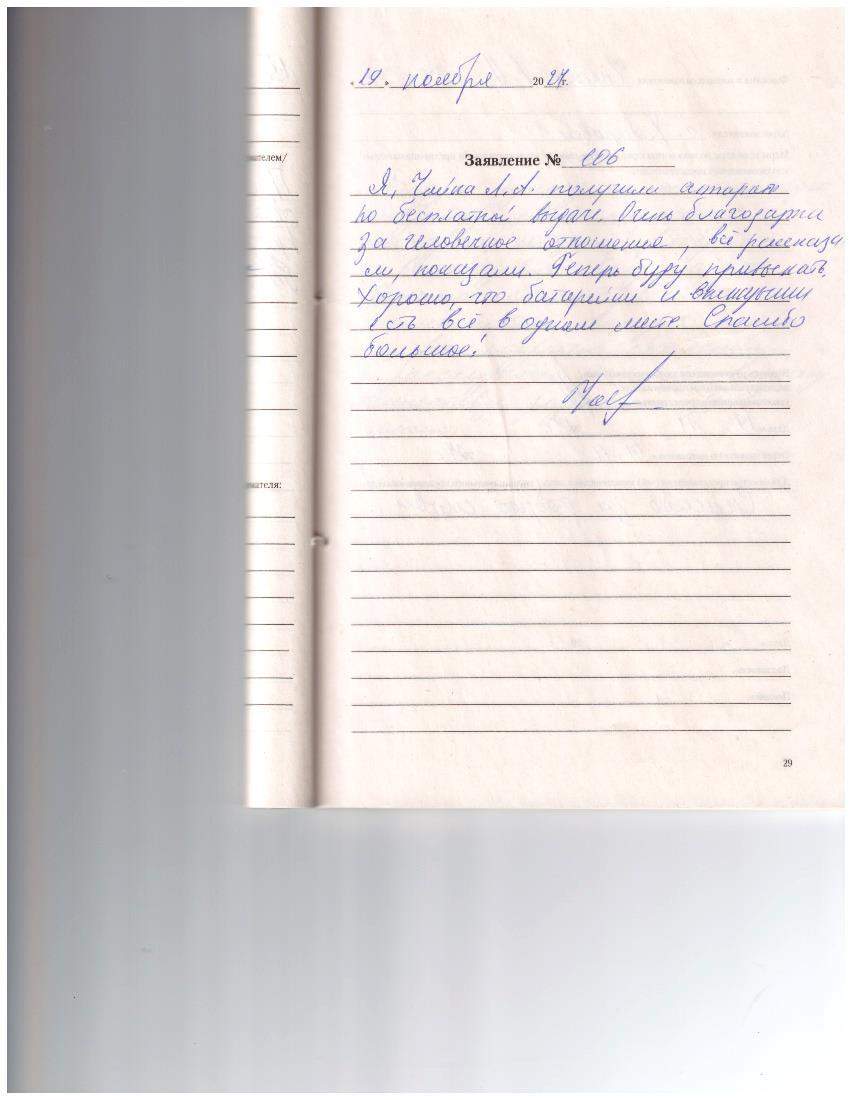 «19» ноября 2024г.
Заявление № 106
Я, Чайка Л.А. получила аппарат
по бесплатной выдаче. Очень благодарна
ателем/
за человечное отношение, всё рассказа
ли, показали. Теперь буду привыкать.
Хорошо, что батарейки и вкладыши
есть всё в одном месте. Спасибо
большое!
ателя:
29